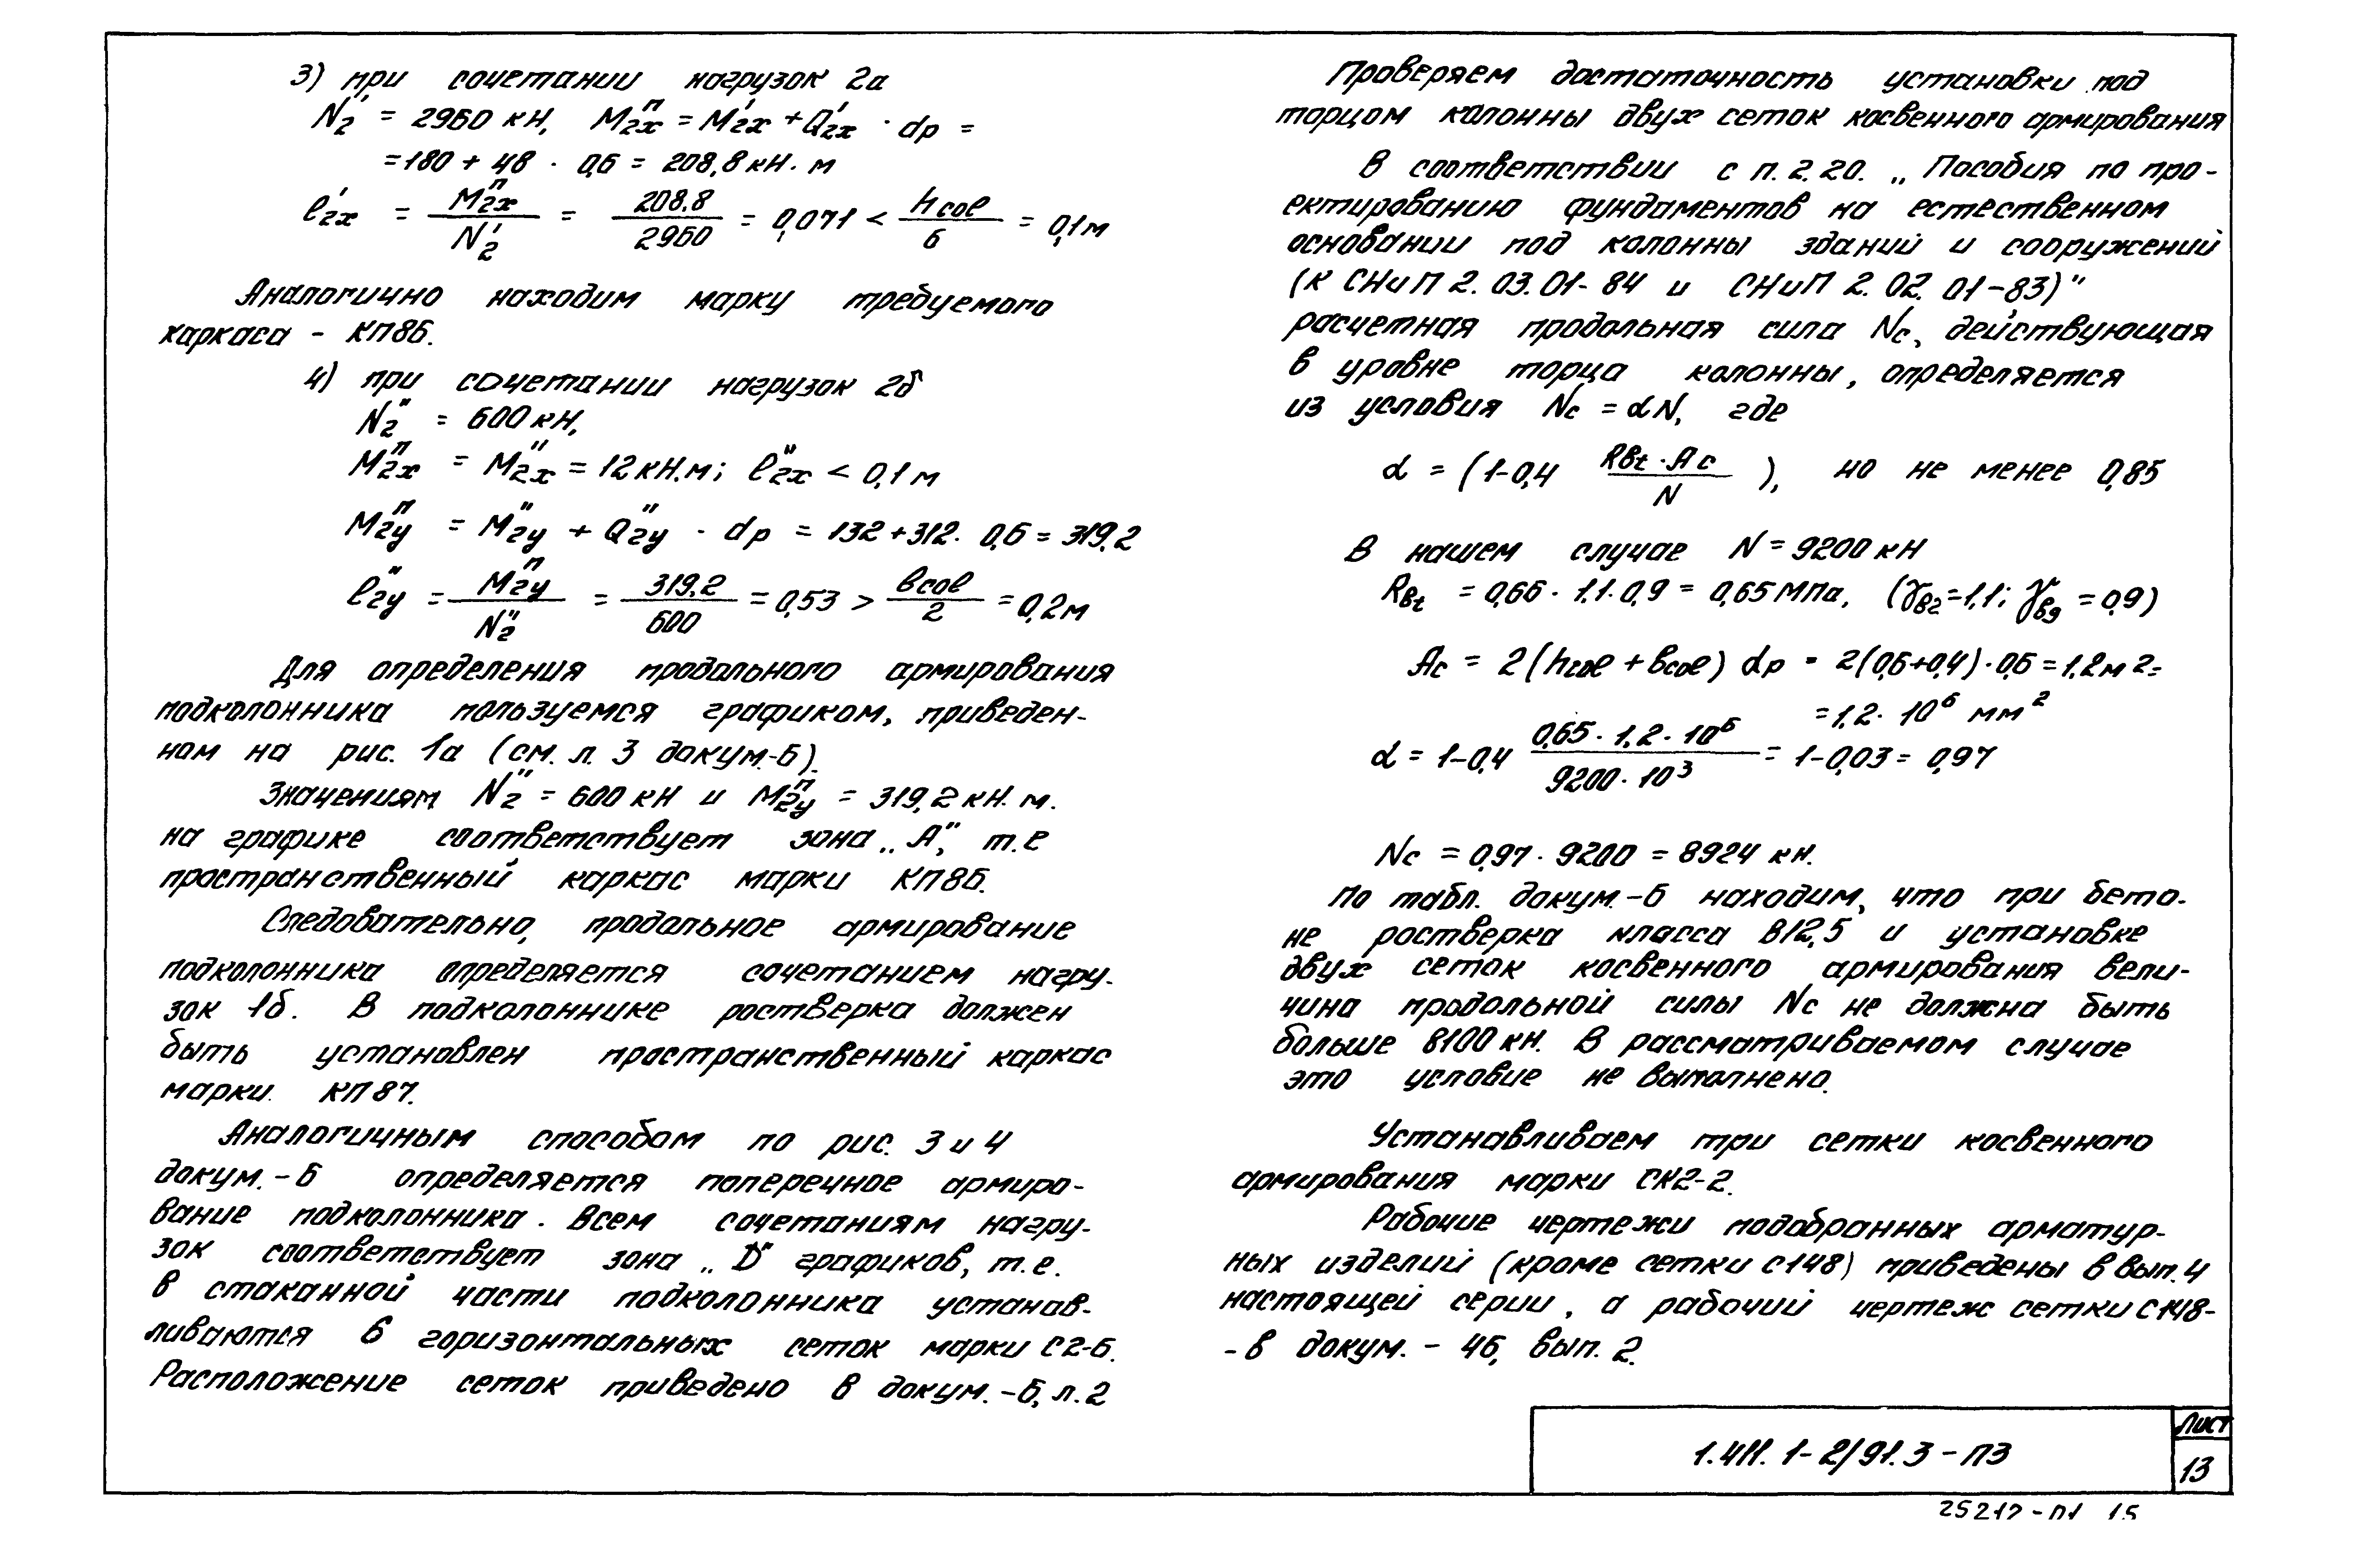 3) при сочетании нагрузок 2а
N₂' = 2960 кН, M₂ₓⁿ = M₂ₓ' + Q₂ₓ' · dp =
= 180 + 48 · 0,6 = 208,8 кН · м
e₂ₓ' = M₂ₓⁿ / N₂' = 208.8 / 2960 = 0,071 < hcol / 6 = 0,1 м
Аналогично находим марку требуемого
каркаса - КП86.
4) при сочетании нагрузок 2б
N₂" = 600 кН,
M₂ₓⁿ = M₂ₓ" = 12 кН.м; e₂ₓ" < 0,1 м
M₂yⁿ = M₂y" + Q₂y" · dp = 132 + 312 · 0,6 = 319,2
e₂y" = M₂yⁿ / N₂" = 319,2 / 600 = 0,53 > bcol / 2 = 0,2 м
Для определения продольного армирования
подколонника пользуемся графиком, приведен-
ном на рис. 1а (см. л. 3 докум.-6).
Значениям N₂" = 600 кН и M₂yⁿ = 319,2 кН. м.
на графике соответствует зона „А", т.е
пространственный каркас марки КП86.
Следовательно, продольное армирование
подколонника определяется сочетанием нагру-
зок 1б. В подколоннике ростверка должен
быть установлен пространственный каркас
марки. КП87.
Аналогичным способом по рис. 3 и 4
докум. - 6 определяется поперечное армиро-
вание подколонника. Всем сочетаниям нагру-
зок соответствует зона „D" графиков, т.е.
в стаканной части подколонника устанав-
ливаются 6 горизонтальных сеток марки С2-6.
Расположение сеток приведено в докум. -6, л. 2
Проверяем достаточность установки под
торцом колонны двух сеток косвенного армирования
В соответствии с п. 2. 20. „Пособия по про-
ектированию фундаментов на естественном
основании под колонны зданий и сооружений
(к СНиП 2. 03. 01- 84 и СНиП 2. 02. 01-83)"
расчетная продольная сила Nc, действующая
в уровне торца колонны, определяется
из условия Nc = αN, где
α = (1-0,4 Rbt · Ac / N), но не менее 0,85
В нашем случае N = 9200 кН
Rbt = 0,66 · 1,1 · 0,9 = 0,65 МПа, (γb2 = 1,1; γb9 = 0,9)
Ac = 2 (hcol + bcol) dp = 2(0,6+0,4) · 0,6 = 1,2 м² =
= 1,2 · 10⁶ мм²
α = 1-0,4 0,65 · 1,2 · 10⁶ / 9200 · 10³ = 1-0,03 = 0,97
Nc = 0,97 · 9200 = 8924 кН.
По табл. докум. -6 находим, что при бето-
не ростверка класса В12,5 и установке
двух сеток косвенного армирования вели-
чина продольной силы Nc не должна быть
больше 8100 кН. В рассматриваемом случае
это условие не выполнено.
Устанавливаем три сетки косвенного
армирования марки СК2-2.
Рабочие чертежи подобранных арматур-
ных изделий (кроме сетки С148) приведены в вып. 4
настоящей серии, а рабочий чертеж сетки С148-
- в докум. - 46, вып. 2.
1.411.1-2/91.3-ПЗ
Лист
13
25212-01 15